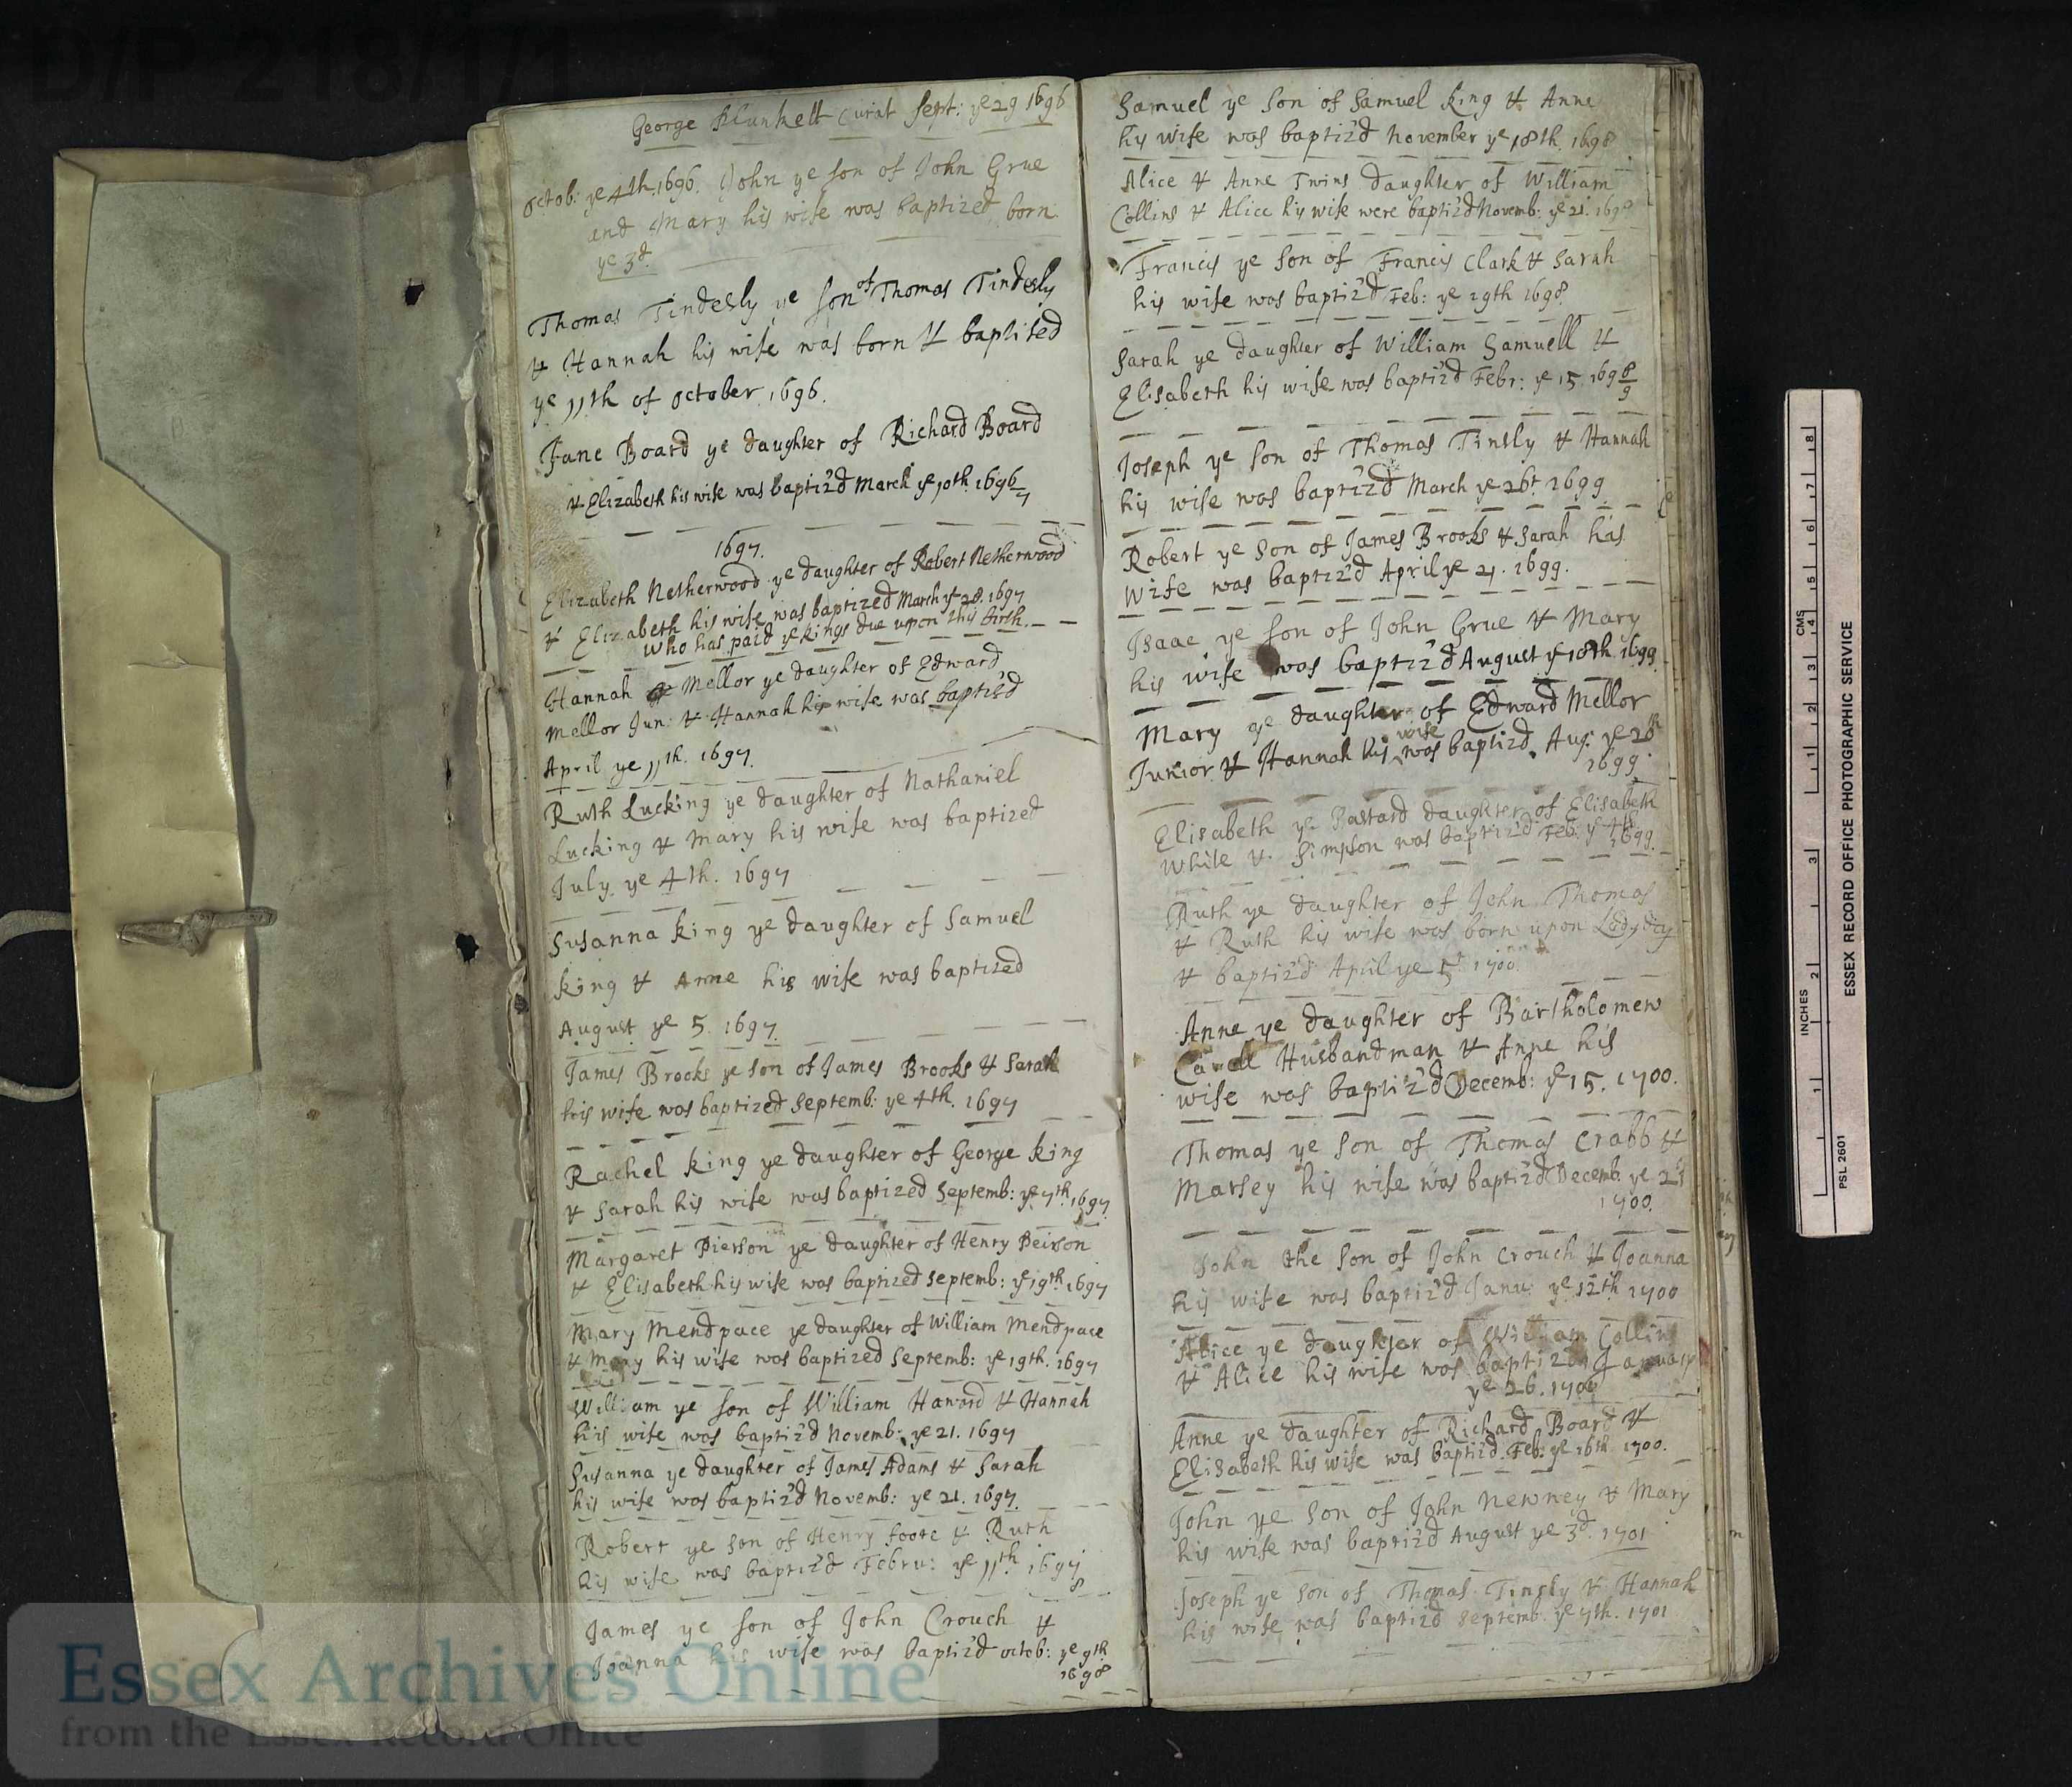 D/P 218/1/1
George Plunkett Curat Sept: ye 29 1696
Octob: ye 4th. 1696. John ye son of John Grue
and Mary his wife was baptized born
ye 3d.
Thomas Tindesly ye son of Thomas Tindesly
& Hannah his wife was born & baptised
ye 11th of October 1696.
Jane Board ye daughter of Richard Board
& Elizabeth his wife was baptiz'd March ye 10th 1696/7
1697.
Elizabeth Netherwood ye daughter of Robert Netherwood
& Elizabeth his wife was baptized March ye 28. 1697
who has paid ye kings due upon this birth.
Hannah Mellor ye daughter of Edward
Mellor Jun: & Hannah his wife was baptis'd
April ye 11th. 1697.
Ruth Lucking ye daughter of Nathaniel
Lucking & Mary his wife was baptized
July ye 4th. 1697
Susanna King ye daughter of Samuel
King & Anne his wife was baptized
August ye 5. 1697.
James Brooks ye son of James Brooks & Sarah
his wife was baptized Septemb: ye 4th. 1697
Rachel King ye daughter of George King
& Sarah his wife was baptized Septemb: ye 7th. 1697
Margaret Pierson ye daughter of Henry Peirson
& Elisabeth his wife was baptized Septemb: ye 19th. 1697
Mary Mendpace ye daughter of William Mendpace
& Mary his wife was baptized Septemb: ye 19th. 1697
William ye son of William Haward & Hannah
his wife was baptiz'd Novemb: ye 21. 1697
Susanna ye daughter of James Adams & Sarah
his wife was baptiz'd Novemb: ye 21. 1697.
Robert ye son of Henry Foote & Ruth
his wife was baptiz'd Febru: ye 11th 1697/8
James ye son of John Crouch &
Joanna his wife was baptiz'd Octob: ye 9th
1698
Samuel ye son of Samuel King & Anne
his wife was baptiz'd November ye 18th. 1698
Alice & Anne Twins daughter of William
Collins & Alice his wife were baptiz'd Novemb: ye 21. 1698
Francis ye son of Francis Clark & Sarah
his wife was baptiz'd Feb: ye 19th 1698
Sarah ye daughter of William Samuell &
Elisabeth his wife was baptiz'd Febr: ye 15. 1698/9
Joseph ye son of Thomas Tinsly & Hannah
his wife was baptiz'd March ye 26t 1699
Robert ye son of James Brooks & Sarah his
wife was baptiz'd April ye 21. 1699.
Isaac ye son of John Grue & Mary
his wife was baptiz'd August ye 18th. 1699
Mary ye daughter of Edward Mellor
Junior & Hannah his wife was baptizd. Aug: ye 28th
1699.
Elisabeth ye Bastard daughter of Elisabeth
White & Simpson was baptiz'd Feb: ye 4th
1699.
Ruth ye daughter of John Thomas
& Ruth his wife was born upon Lady day
& baptiz'd April ye 5t 1700
Anne ye daughter of Bartholomew
Husbandman & Anne his
wife was baptiz'd Decemb: ye 15. 1700.
Thomas ye son of Thomas Crabb &
Marsey his wife was baptiz'd Decemb. ye
1700.
John the son of John Crouch & Joanna
his wife was baptiz'd Janu: ye 12th 1700
Alice ye daughter of William Collins
& Alice his wife was baptized January
ye 26. 1700
Anne ye daughter of Richard Board &
Elisabeth his wife was baptiz'd. Feb: ye 16th 1700.
John ye son of John Newney & Mary
his wife was baptiz'd August ye 3d. 1701
Joseph ye son of Thomas Tingly & Hannah
his wife was baptizd Septemb. ye 7th. 1701
INCHES 1 2 3
CMS 1 2 3 4 5 6 7 8
PSL 2601 ESSEX RECORD OFFICE PHOTOGRAPHIC SERVICE
Essex Archives Online
from the Essex Record Office